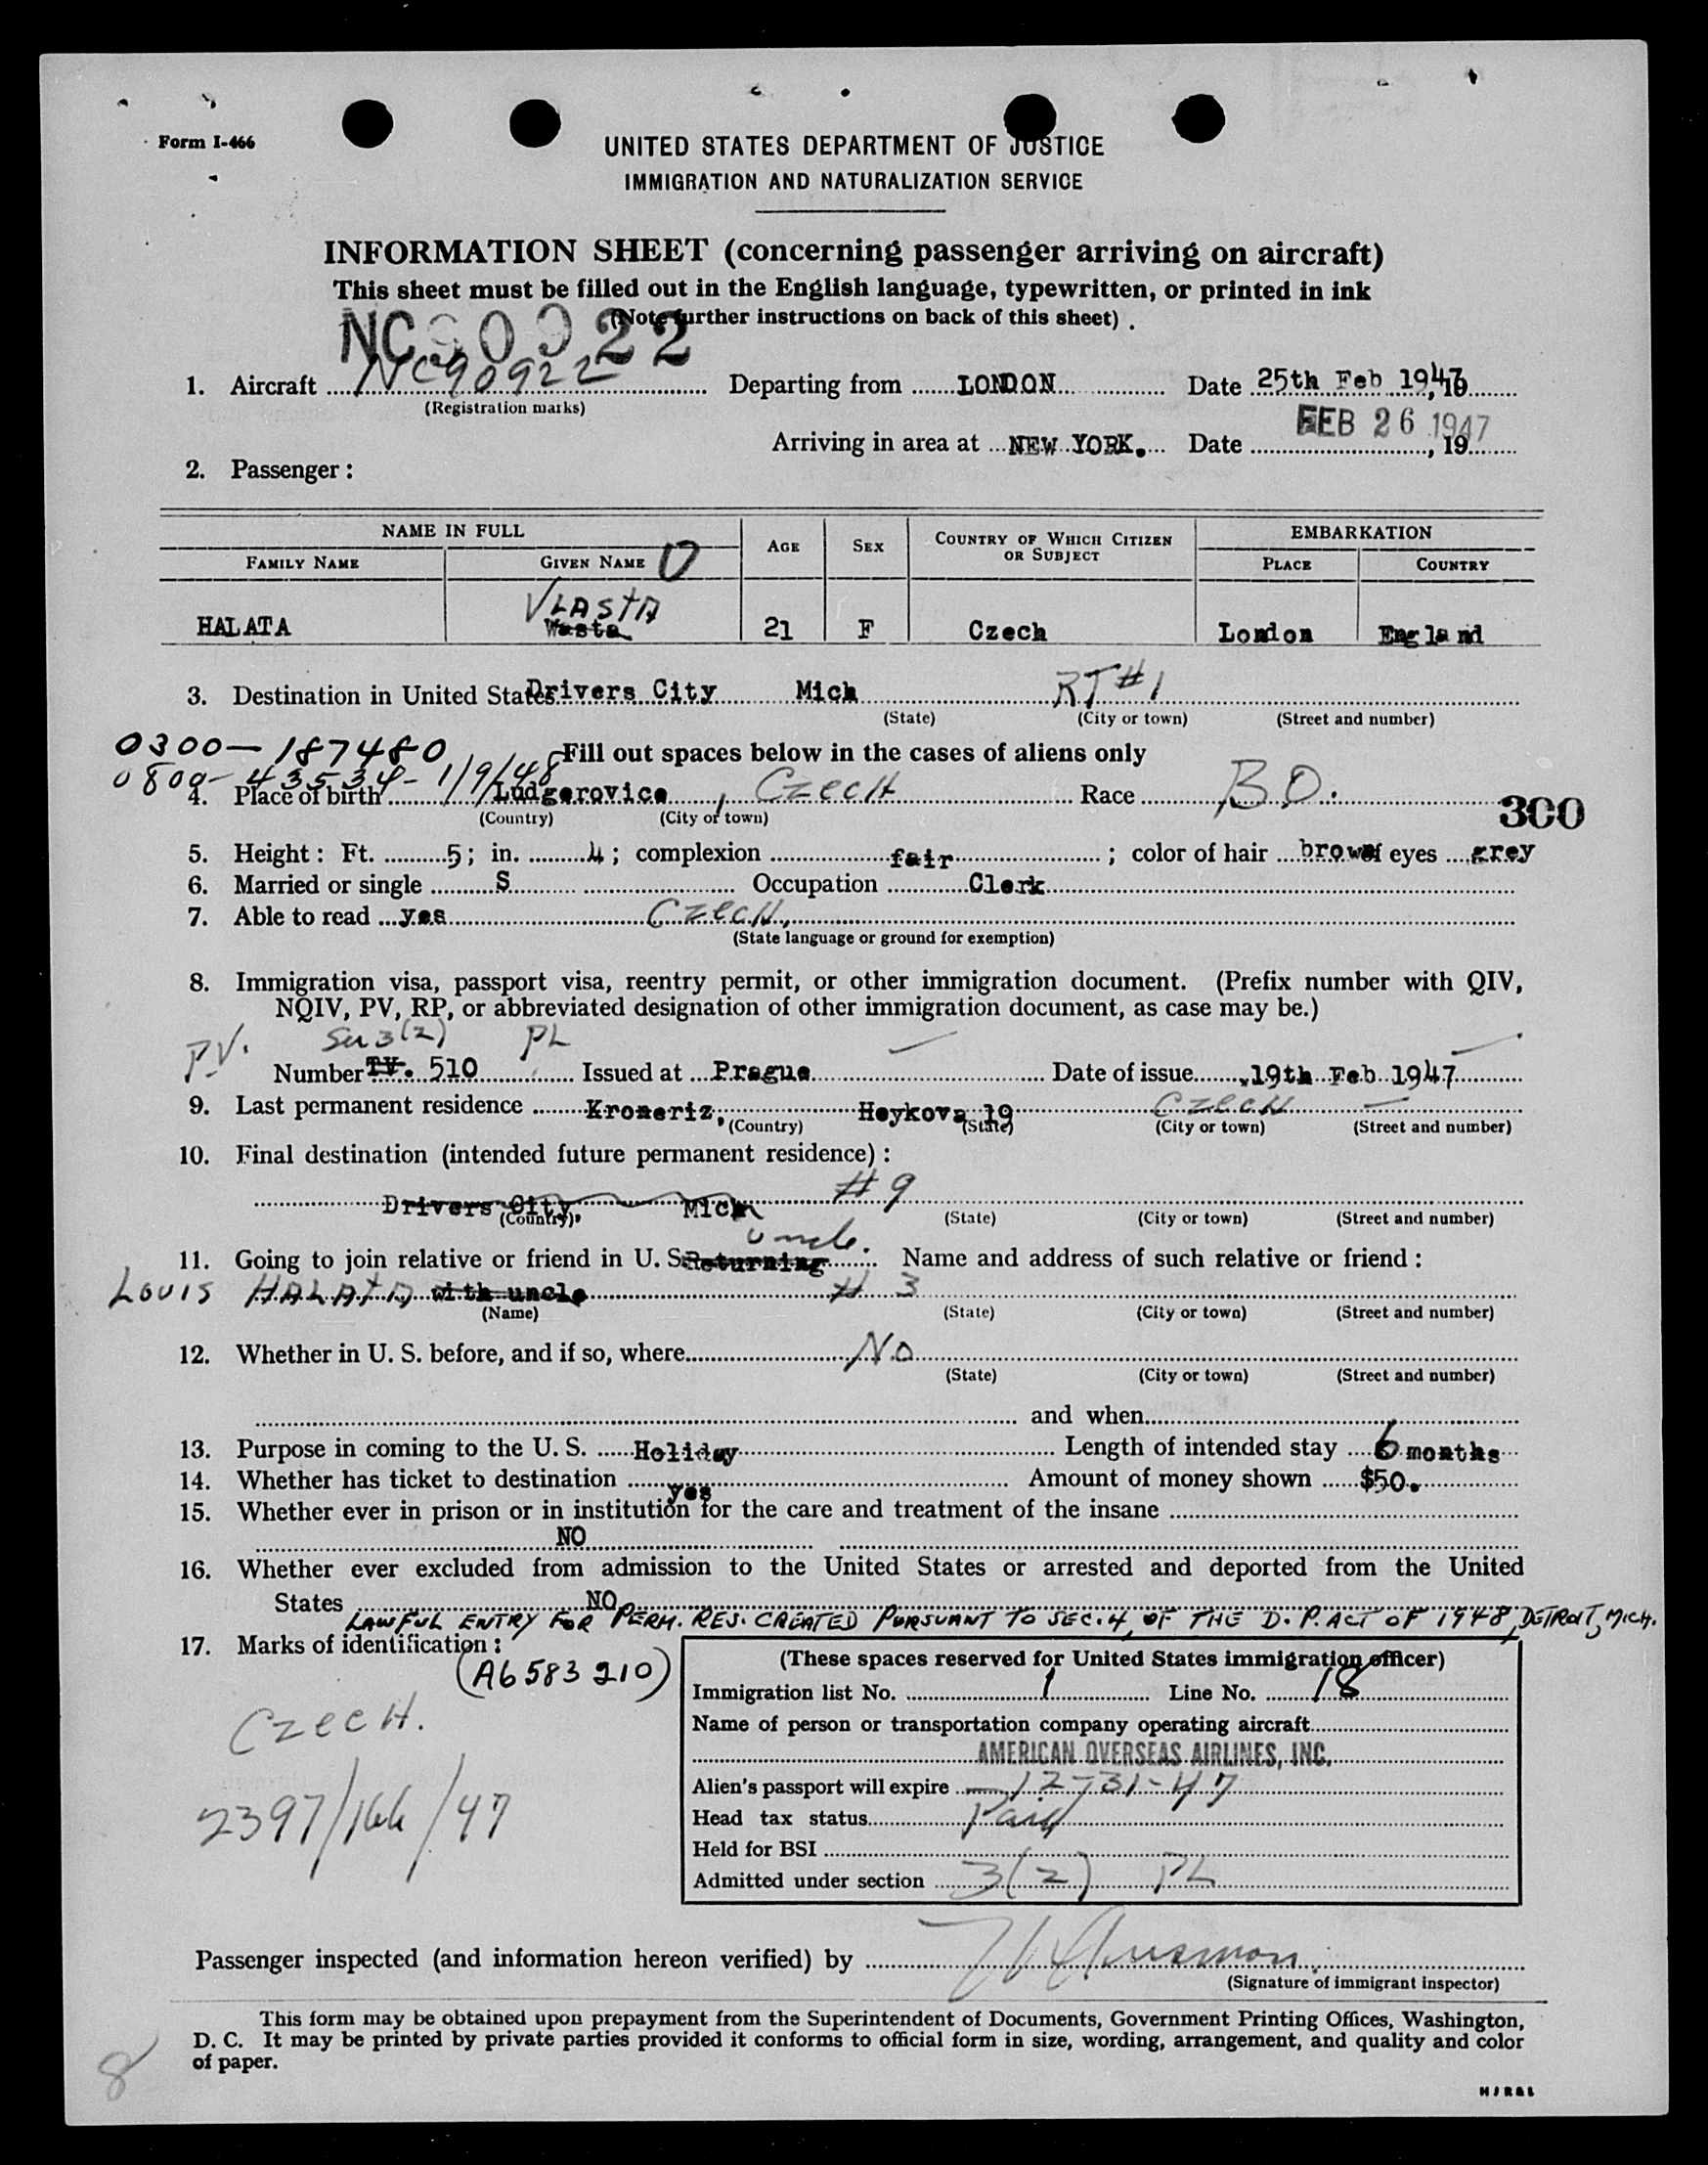 Form I-466
UNITED STATES DEPARTMENT OF JUSTICE
IMMIGRATION AND NATURALIZATION SERVICE
INFORMATION SHEET (concerning passenger arriving on aircraft)
This sheet must be filled out in the English language, typewritten, or printed in ink
(Note further instructions on back of this sheet).
NC90922
1. Aircraft NC90922 Departing from LONDON Date 25th Feb 1947, 19
(Registration marks)
FEB 26 1947
Arriving in area at NEW YORK. Date , 19
2. Passenger:
NAME IN FULL AGE SEX COUNTRY OF WHICH CITIZEN OR SUBJECT EMBARKATION
FAMILY NAME GIVEN NAME PLACE COUNTRY
VLASTA
HALATA Wasta 21 F Czech London England
3. Destination in United States Drivers City Mich RT #1
(State) (City or town) (Street and number)
0300-187480 Fill out spaces below in the cases of aliens only
0800-43534-1/9/48
4. Place of birth Ludgerovice, Czech Race BO.
(Country) (City or town)
300
5. Height: Ft. 5; in. 4; complexion fair; color of hair brown of eyes grey
6. Married or single S Occupation Clerk
7. Able to read yes Czech,
(State language or ground for exemption)
8. Immigration visa, passport visa, reentry permit, or other immigration document. (Prefix number with QIV,
NQIV, PV, RP, or abbreviated designation of other immigration document, as case may be.)
P.V. 3(2) PL
Number 510 Issued at Prague Date of issue 19th Feb 1947
9. Last permanent residence Kromeriz, Heykova 19 Czech
(Country) (State) (City or town) (Street and number)
10. Final destination (intended future permanent residence):
Drivers City, Mich #9
(Country) (State) (City or town) (Street and number)
uncle.
11. Going to join relative or friend in U. S. Returning Name and address of such relative or friend:
LOUIS HALATA, with uncle # 3
(Name) (State) (City or town) (Street and number)
12. Whether in U. S. before, and if so, where No
(State) (City or town) (Street and number)
and when
13. Purpose in coming to the U. S. Holiday Length of intended stay 6 months
14. Whether has ticket to destination yes Amount of money shown $50.
15. Whether ever in prison or in institution for the care and treatment of the insane
NO
16. Whether ever excluded from admission to the United States or arrested and deported from the United
States NO
LAWFUL ENTRY FOR PERM. RES. CREATED PURSUANT TO SEC. 4, OF THE D. P. ACT OF 1948, DETROIT, MICH.
17. Marks of identification:
(A6 583 210)
Czech.
2397/166/47
(These spaces reserved for United States immigration officer)
Immigration list No. 1 Line No. 18
Name of person or transportation company operating aircraft
AMERICAN OVERSEAS AIRLINES, INC.
Alien's passport will expire 12-31-47
Head tax status Paid
Held for BSI
Admitted under section 3(2) PL
Passenger inspected (and information hereon verified) by
(Signature of immigrant inspector)
This form may be obtained upon prepayment from the Superintendent of Documents, Government Printing Offices, Washington,
D. C. It may be printed by private parties provided it conforms to official form in size, wording, arrangement, and quality and color
of paper.
8